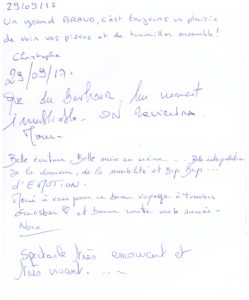 29/09/17
Un grand BRAVO, c'est toujours un plaisir
de voir vos pièces et de travailler ensemble!
Christophe
29/09/17.
Que du bonheur, un moment
inoubliable. ON Reviendra
Belle écriture, Belle mise en scène... Belle interprétation
de la douceur, de la sensibilité et Bcp Bcp...
d'EMOTION.
Merci à vous pour ce beau voyage à travers
Gainsbourg et bonne route vers le succès -
Nora
Spectacle très émouvant et
très vivant. ...